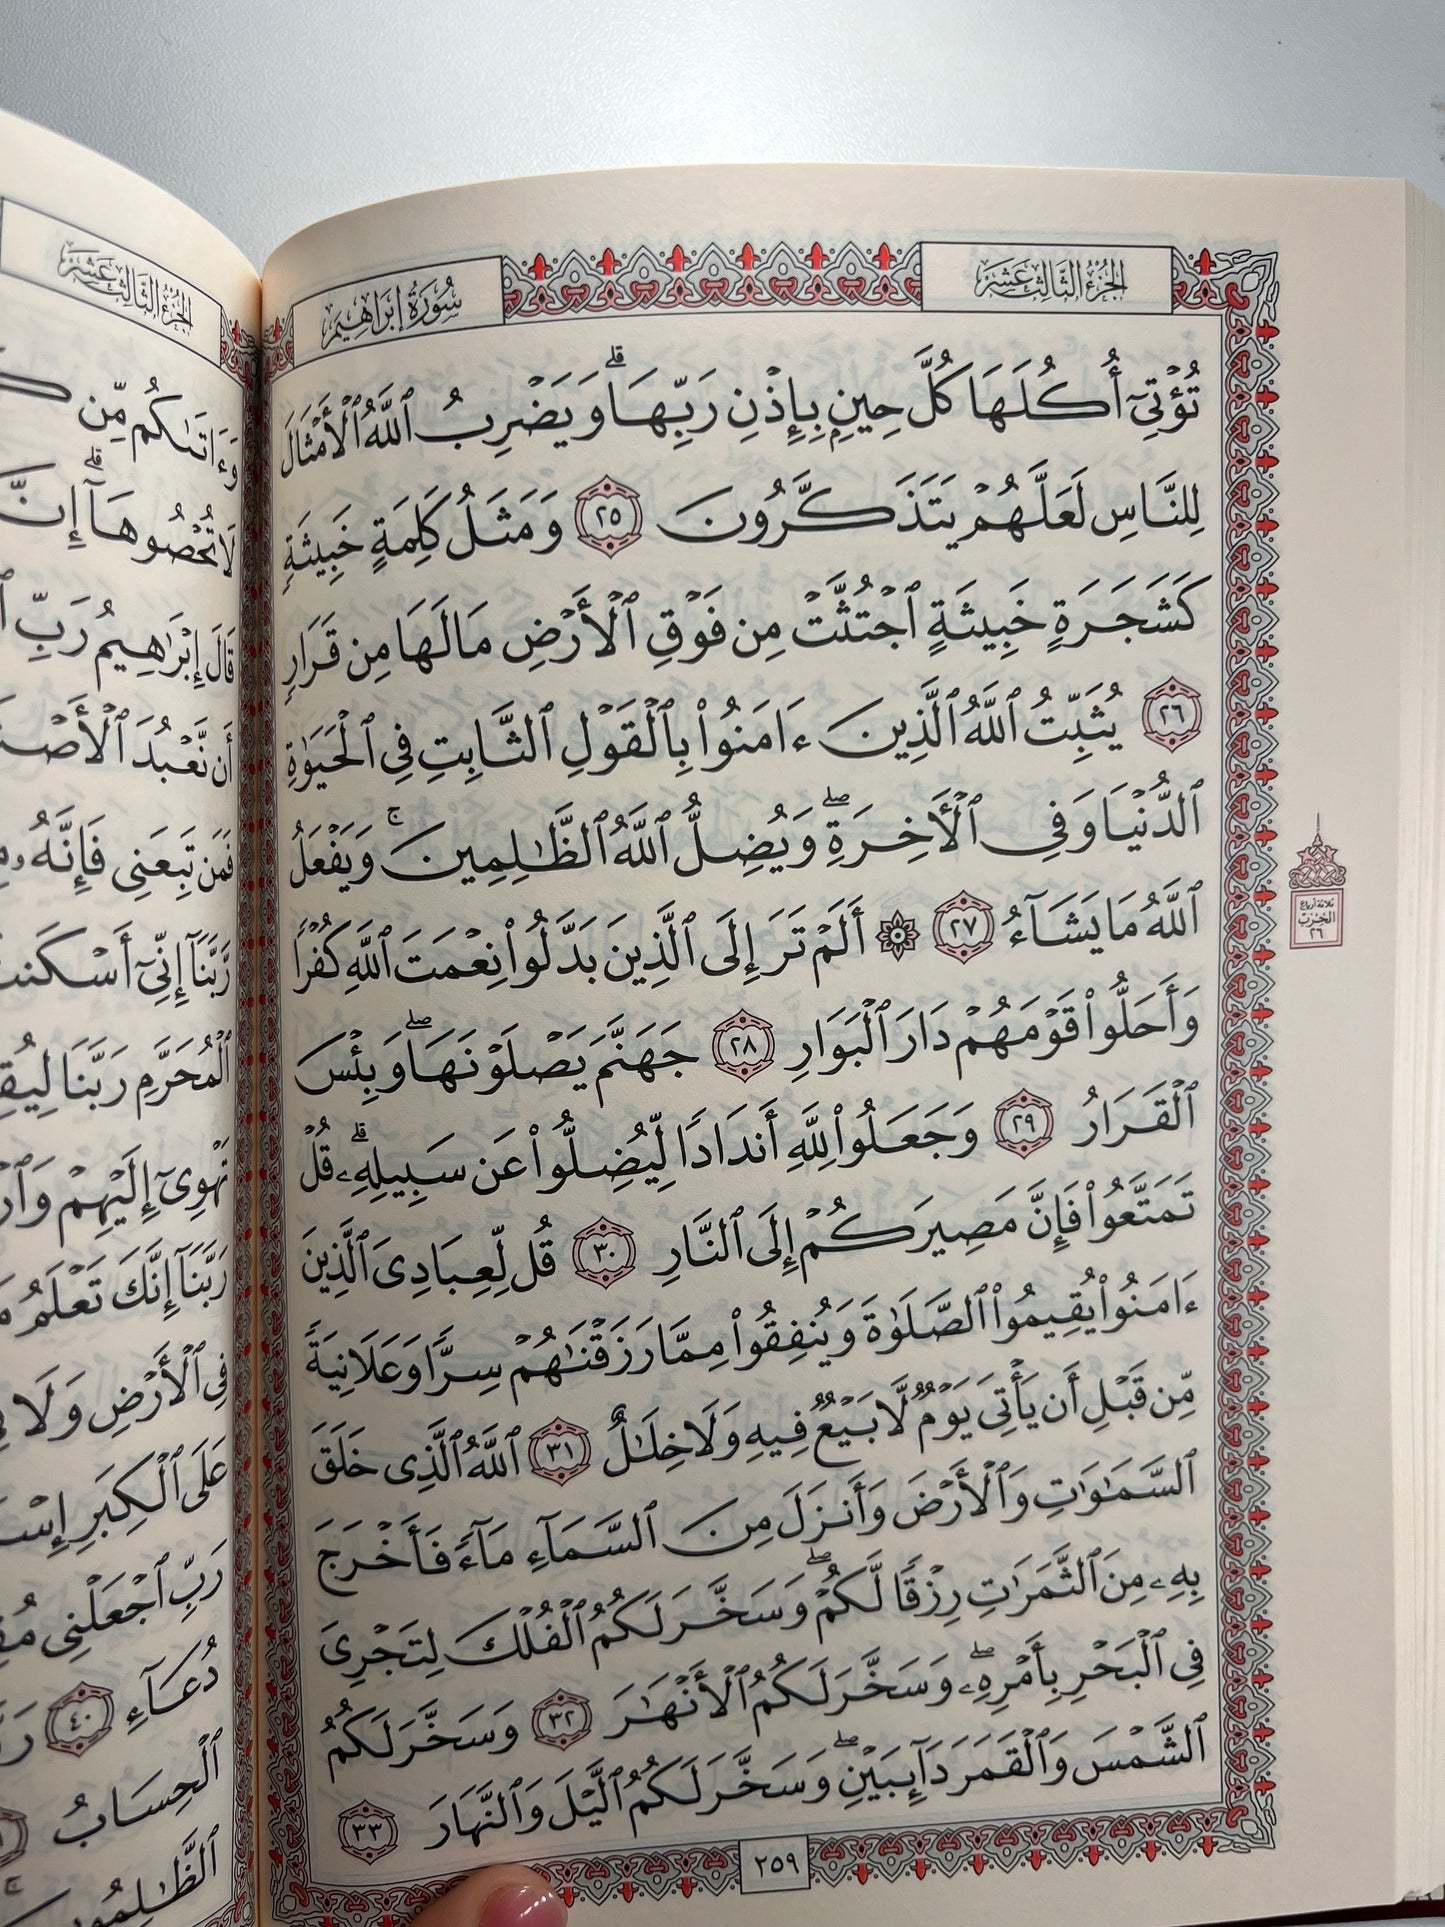 الجزء الثالث عشر
سورة إبراهيم
تُؤْتِىٓ أُكُلَهَا كُلَّ حِينٍۭ بِإِذْنِ رَبِّهَاۗ وَيَضْرِبُ ٱللَّهُ ٱلْأَمْثَالَ
لِلنَّاسِ لَعَلَّهُمْ يَتَذَكَّرُونَ ٢٥ وَمَثَلُ كَلِمَةٍ خَبِيثَةٍ
كَشَجَرَةٍ خَبِيثَةٍ ٱجْتُثَّتْ مِن فَوْقِ ٱلْأَرْضِ مَا لَهَا مِن قَرَارٍ
٢٦ يُثَبِّتُ ٱللَّهُ ٱلَّذِينَ ءَامَنُوا۟ بِٱلْقَوْلِ ٱلثَّابِتِ فِى ٱلْحَيَوٰةِ
ٱلدُّنْيَا وَفِى ٱلْأَخِرَةِۖ وَيُضِلُّ ٱللَّهُ ٱلظَّٰلِمِينَۚ وَيَفْعَلُ
ٱللَّهُ مَا يَشَآءُ ٢٧ ۞ أَلَمْ تَرَ إِلَى ٱلَّذِينَ بَدَّلُوا۟ نِعْمَتَ ٱللَّهِ كُفْرًا
وَأَحَلُّوا۟ قَوْمَهُمْ دَارَ ٱلْبَوَارِ ٢٨ جَهَنَّمَ يَصْلَوْنَهَاۖ وَبِئْسَ
ٱلْقَرَارُ ٢٩ وَجَعَلُوا۟ لِلَّهِ أَندَادًا لِّيُضِلُّوا۟ عَن سَبِيلِهِۦۗ قُلْ
تَمَتَّعُوا۟ فَإِنَّ مَصِيرَكُمْ إِلَى ٱلنَّارِ ٣٠ قُل لِّعِبَادِىَ ٱلَّذِينَ
ءَامَنُوا۟ يُقِيمُوا۟ ٱلصَّلَوٰةَ وَيُنفِقُوا۟ مِمَّا رَزَقْنَٰهُمْ سِرًّا وَعَلَانِيَةً
مِّن قَبْلِ أَن يَأْتِىَ يَوْمٌ لَّا بَيْعٌ فِيهِ وَلَا خِلَٰلٌ ٣١ ٱللَّهُ ٱلَّذِى خَلَقَ
ٱلسَّمَٰوَٰتِ وَٱلْأَرْضَ وَأَنزَلَ مِنَ ٱلسَّمَآءِ مَآءً فَأَخْرَجَ
بِهِۦ مِنَ ٱلثَّمَرَٰتِ رِزْقًا لَّكُمْۖ وَسَخَّرَ لَكُمُ ٱلْفُلْكَ لِتَجْرِىَ
فِى ٱلْبَحْرِ بِأَمْرِهِۦۖ وَسَخَّرَ لَكُمُ ٱلْأَنْهَٰرَ ٣٢ وَسَخَّرَ لَكُمُ
ٱلشَّمْسَ وَٱلْقَمَرَ دَآئِبَيْنِۖ وَسَخَّرَ لَكُمُ ٱلَّيْلَ وَٱلنَّهَارَ ٣٣
٢٥٩
ثلاثة أرباع
الحزب
٢٦
الجزء الثالث عشر
وَءَاتَىٰكُم مِّن
لَا تُحْصُوهَآۗ إِنَّ
قَالَ إِبْرَٰهِيمُ رَبِّ
أَن نَّعْبُدَ
فَمَن تَبِعَنِى فَإِنَّهُۥ
رَّبَّنَآ إِنِّىٓ
ٱلْمُحَرَّمِ رَبَّنَا
تَهْوِىٓ إِلَيْهِمْ
رَبَّنَآ إِنَّكَ تَعْلَمُ
فِى ٱلْأَرْضِ وَلَا
عَلَى ٱلْكِبَرِ
رَبِّ ٱجْعَلْنِى
دُعَآءِ ٤٠
ٱلْحِسَابُ
ٱلظَّٰلِمُونَ